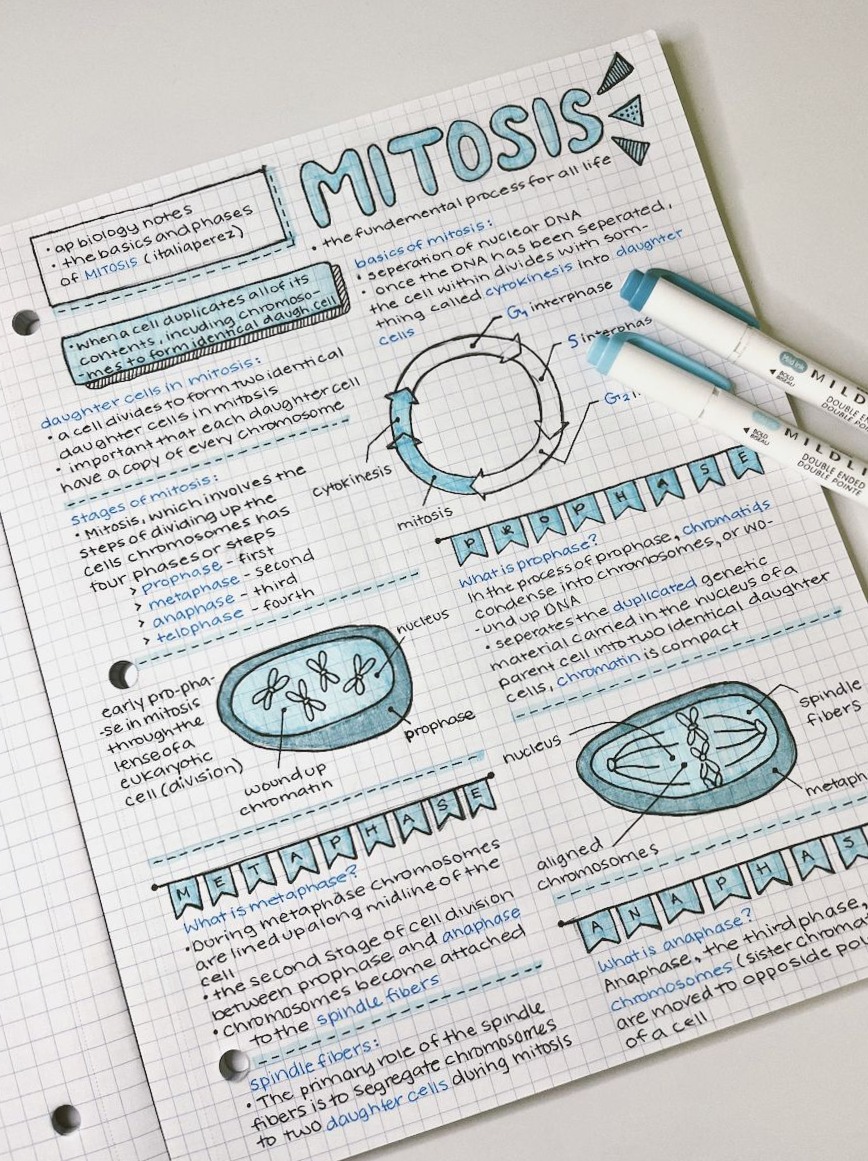 MITOSIS
• the fundemental process for all life
• ap biology notes
• the basics and phases
of MITOSIS (italiaperez)
• when a cell duplicates all of its
contents, incuding chromoso-
-mes to form identical daugh cell
daughter cells in mitosis:
• a cell divides to form two identical
daughter cells in mitosis
• important that each daughter cell
have a copy of every chromosome
stages of mitosis:
• Mitosis, which involves the
steps of dividing up the
cells chromosomes has
four phases or steps
> prophase - first
> metaphase - second
> anaphase - third
> telophase - fourth
basics of mitosis:
• seperation of nuclear DNA
• once the DNA has been seperated,
the cell within divides with som-
thing called cytokinesis into daughter
cells
G1 interphase
S interphas
G2 i
cytokinesis
mitosis
MILDL
DOUBLE ENDED
DOUBLE POINT
BOLD
BISEAU
MILDLI
DOUBLE ENDED
DOUBLE POINTE
BOLD
BISEAU
PROPHASE
What is prophase?
In the process of prophase, chromatids
condense into chromosomes, or wo-
-und up DNA
• seperates the duplicated genetic
material carried in the nucleus of a
parent cell into two identical daughter
cells, chromatin is compact
early pro-pha-
-se in mitosis
through the
lense of a
eukaryotic
cell (division)
nucleus
prophase
wound up
chromatin
nucleus
spindle
fibers
metaph
aligned
chromosomes
METAPHASE
What is metaphase?
• During metaphase chromosomes
are lined up along midline of the
cell
• the second stage of cell division
between prophase and anaphase
• chromosomes become attached
to the spindle fibers
spindle fibers:
• The primary role of the spindle
fibers is to segregate chromosomes
to two daughter cells during mitosis
ANAPHAS
What is anaphase?
Anaphase, the third phase,
chromosomes (sister chroma
are moved to opposide pol
of a cell